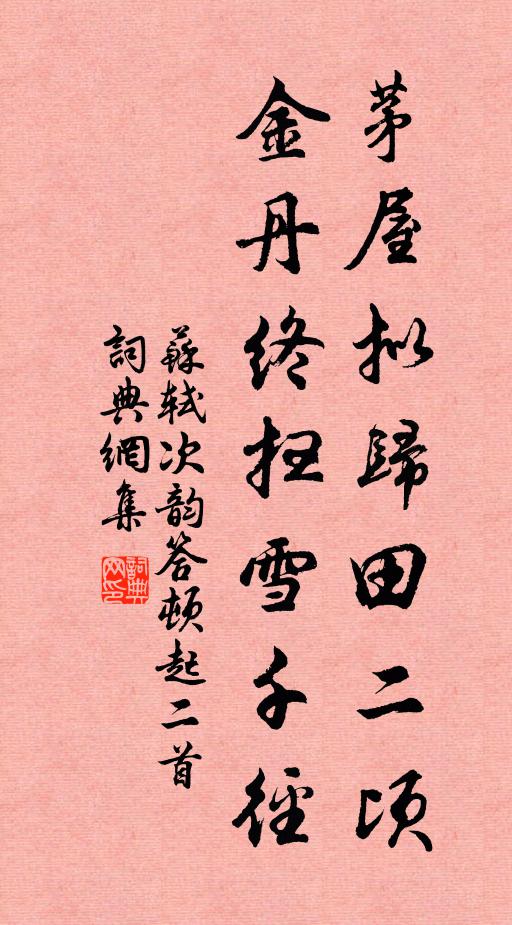 茅屋拟歸田二頃
金丹終扫雪千徑
蘇軾次韵答頓起二首
詞典網集
詞典
网印